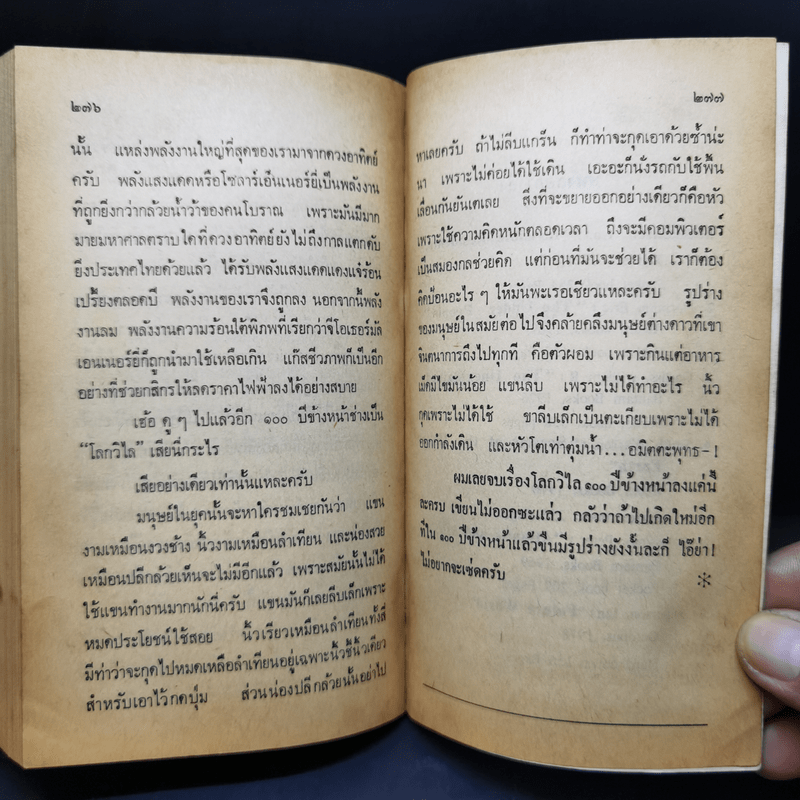 ๒๗๖
นั้น แหล่งพลังงานใหญ่ที่สุดของเรามาจากดวงอาทิตย์
ครับ พลังแสงแดดหรือโซลาร์เอ็นเนอร์ยี่เป็นพลังงาน
ที่ถูกยิ่งกว่ากล้วยน้ำว้าของคนโบราณ เพราะมันมีมาก
มายมหาศาลตราบใดที่ดวงอาทิตย์ยังไม่ถึงกาลแตกดับ
ยิ่งประเทศไทยด้วยแล้ว ได้รับพลังแสงแดดแดงแจ๋ร้อน
เปรี้ยงตลอดปี พลังงานของเราจึงถูกลง นอกจากนี้พลัง
งานลม พลังงานความร้อนใต้พิภพที่เรียกว่าจีโอเธอร์มัล
เอนเนอร์ยี่ก็ถูกนำมาใช้เหลือเกิน แก๊สชีวภาพก็เป็นอีก
อย่างที่ช่วยกสิกรให้ลดราคาไฟฟ้าลงได้อย่างสบาย
เฮ้อ ดู ๆ ไปแล้วอีก ๑๐๐ ปีข้างหน้าช่างเป็น
“โลกวิไล” เสียนี่กระไร
เสียอย่างเดียวเท่านั้นแหละครับ
มนุษย์ในยุคนั้นจะหาใครชมเชยกันว่า แขน
งามเหมือนงวงช้าง นิ้วงามเหมือนลำเทียน และน่องสวย
เหมือนปลีกล้วยเห็นจะไม่มีอีกแล้ว เพราะสมัยนั้นไม่ได้
ใช้แขนทำงานมากนักนี่ครับ แขนมันก็เลยลีบเล็กเพราะ
หมดประโยชน์ใช้สอย นิ้วเรียวเหมือนลำเทียนทั้งสี่
มีท่าว่าจะกุดไปหมดเหลือลำเทียนอยู่เฉพาะนิ้วชี้นิ้วเดียว
สำหรับเอาไว้กดปุ่ม ส่วนน่องปลีกล้วยนั้นอย่าไป
๒๗๗
หาเลยครับ ถ้าไม่ลีบแกร็น ก็ทำท่าจะกุดเอาด้วยซ้ำน่ะ
นา เพราะไม่ค่อยได้ใช้เดิน เอะอะก็นั่งรถกับใช้พื้น
เลื่อนกันยันเตเลย สิ่งที่จะขยายออกอย่างเดียวก็คือหัว
เพราะใช้ความคิดหนักตลอดเวลา ถึงจะมีคอมพิวเตอร์
เป็นสมองกลช่วยคิด แต่ก่อนที่มันจะช่วยได้ เราก็ต้อง
คิดป้อนอะไร ๆ ให้มันพะเรอเชียวแหละครับ รูปร่าง
ของมนุษย์ในสมัยต่อไปจึงคล้ายคลึงมนุษย์ต่างดาวที่เขา
จินตนาการถึงไปทุกที คือตัวผอม เพราะกินแต่อาหาร
เม็ดมีไขมันน้อย แขนลีบ เพราะไม่ได้ทำอะไร นิ้ว
กุดเพราะไม่ได้ใช้ ขาลีบเล็กเป็นตะเกียบเพราะไม่ได้
ออกกำลังเดิน และหัวโตเท่าตุ่มน้ำ...อมิตตะพุทธ-!
ผมเลยจบเรื่องโลกวิไล ๑๐๐ ปีข้างหน้าลงแค่นี้
ละครับ เขียนไม่ออกซะแล้ว กลัวว่าถ้าไปเกิดใหม่อีก
ทีใน ๑๐๐ ปีข้างหน้าแล้วขืนมีรูปร่างยังงั้นละก็ ไอ๊ย่า!
ไม่อยากจะเซ่ดครับ